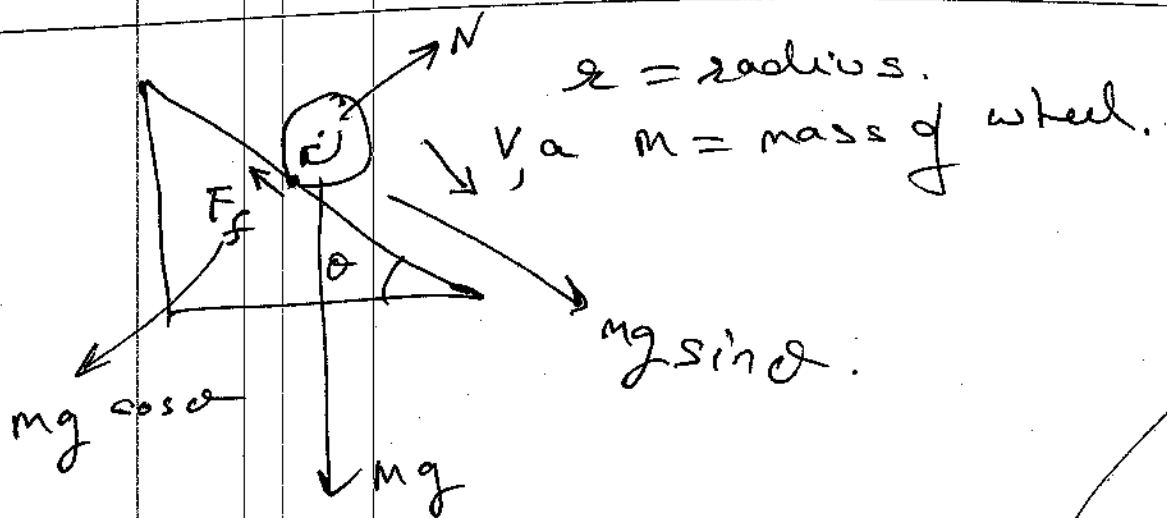 N
r = radius.
V, a m = mass of wheel.
r
F_f
θ
mg sinθ.
mg cosθ
mg